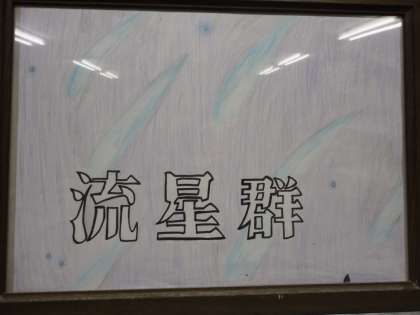 流星群